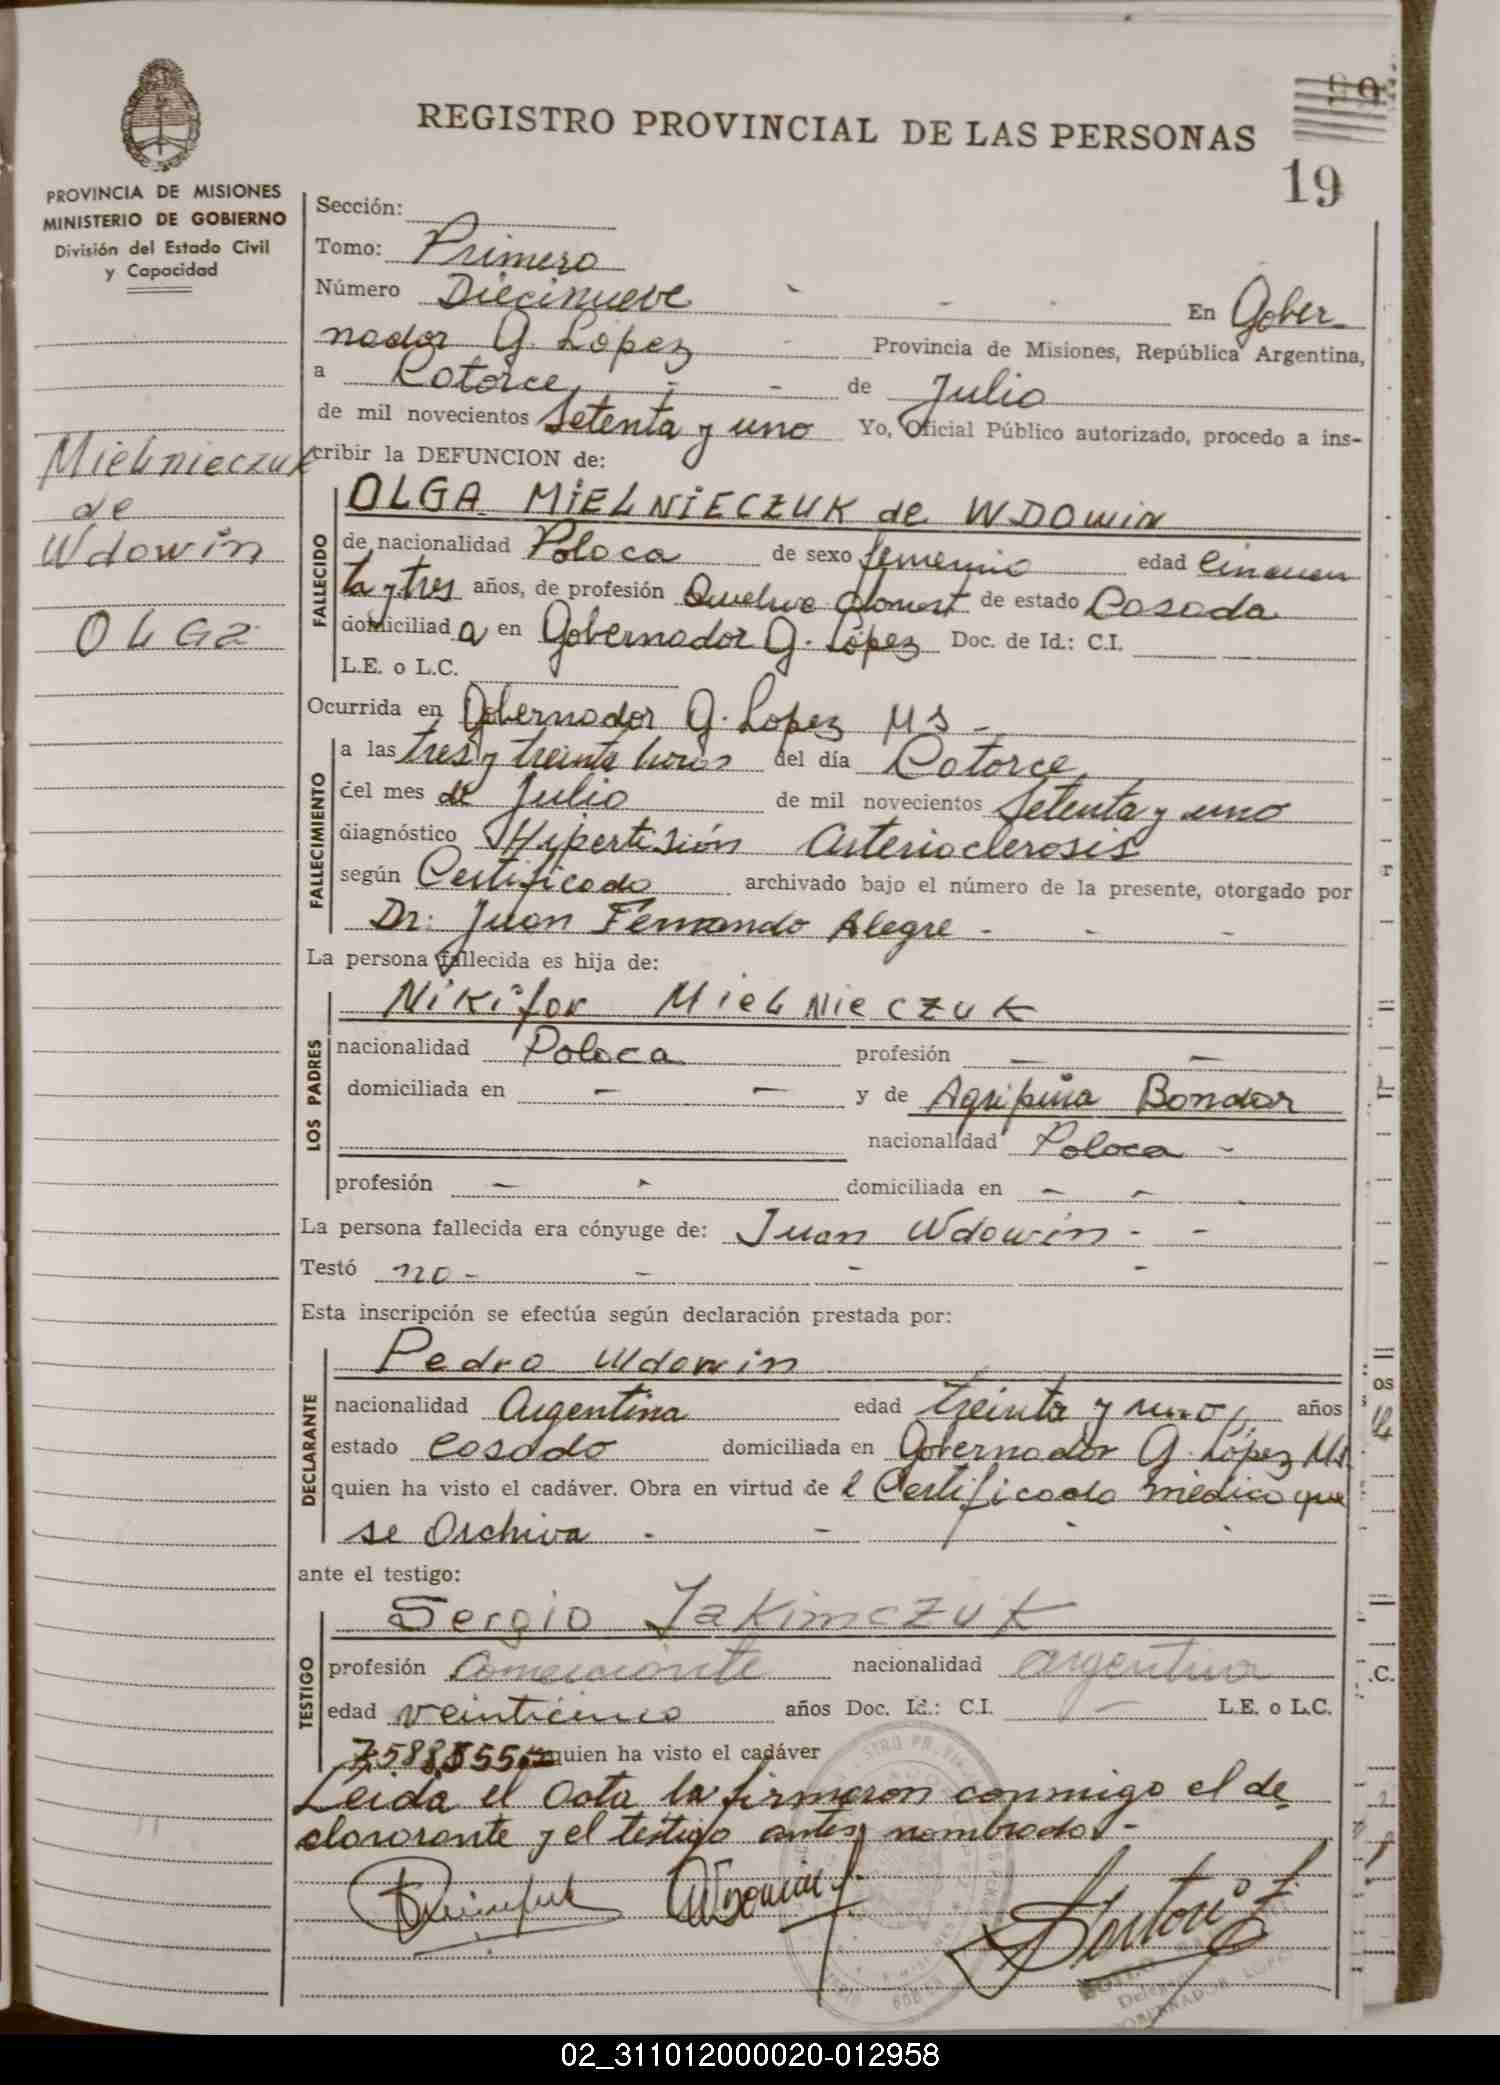 REGISTRO PROVINCIAL DE LAS PERSONAS
19
PROVINCIA DE MISIONES
MINISTERIO DE GOBIERNO
División del Estado Civil
y Capacidad
Mielnieczuk
de
Wdowin
OLGa
Sección:
Tomo: Primero
Número Diecinueve - - - En Gober-
nador G. López - Provincia de Misiones, República Argentina,
a Catorce - - de Julio
de mil novecientos Setenta y uno Yo, Oficial Público autorizado, procedo a ins-
cribir la DEFUNCION de:
FALLECIDO
OLGA MIELNIECZUK de WDOWIN
de nacionalidad Polaca de sexo femenino edad Cincuen
ta y tres años, de profesión de estado Casada
domiciliada en Gobernador G. López Doc. de Id.: C.I.
L.E. o L.C.
Ocurrida en Gobernador G. Lopez Ms -
FALLECIMIENTO
a las tres y treinta horas del día Catorce
del mes de Julio de mil novecientos Setenta y uno
diagnóstico Hipertisión Arterioclerosis
según Certificado archivado bajo el número de la presente, otorgado por
Dr: Juan Fernando Alegre - - -
La persona fallecida es hija de:
LOS PADRES
Nikifor Mielnieczuk
nacionalidad Polaca profesión — —
domiciliada en — — y de Agripina Bondar
nacionalidad Polaca -
profesión — - domiciliada en - -
La persona fallecida era cónyuge de: Juan Wdowin - -
Testó no - - - -
Esta inscripción se efectúa según declaración prestada por:
DECLARANTE
Pedro Wdowin
nacionalidad Argentina edad treinta y uno años
estado Casado domiciliada en Gobernador G. López Ms.
quien ha visto el cadáver. Obra en virtud de l Certificado médico que
se Archiva - - - -
ante el testigo:
TESTIGO
Sergio Jakimczuk
profesión Comerciante nacionalidad argentina
edad veinticinco años Doc. Id.: C.I. — L.E. o L.C.
7.588.555 quien ha visto el cadáver
Leida el acta la firmaron conmigo el de
clararante y el testigo antes nombrados -
Wdowin
GOBERNADOR LOPEZ
02_311012000020-012958